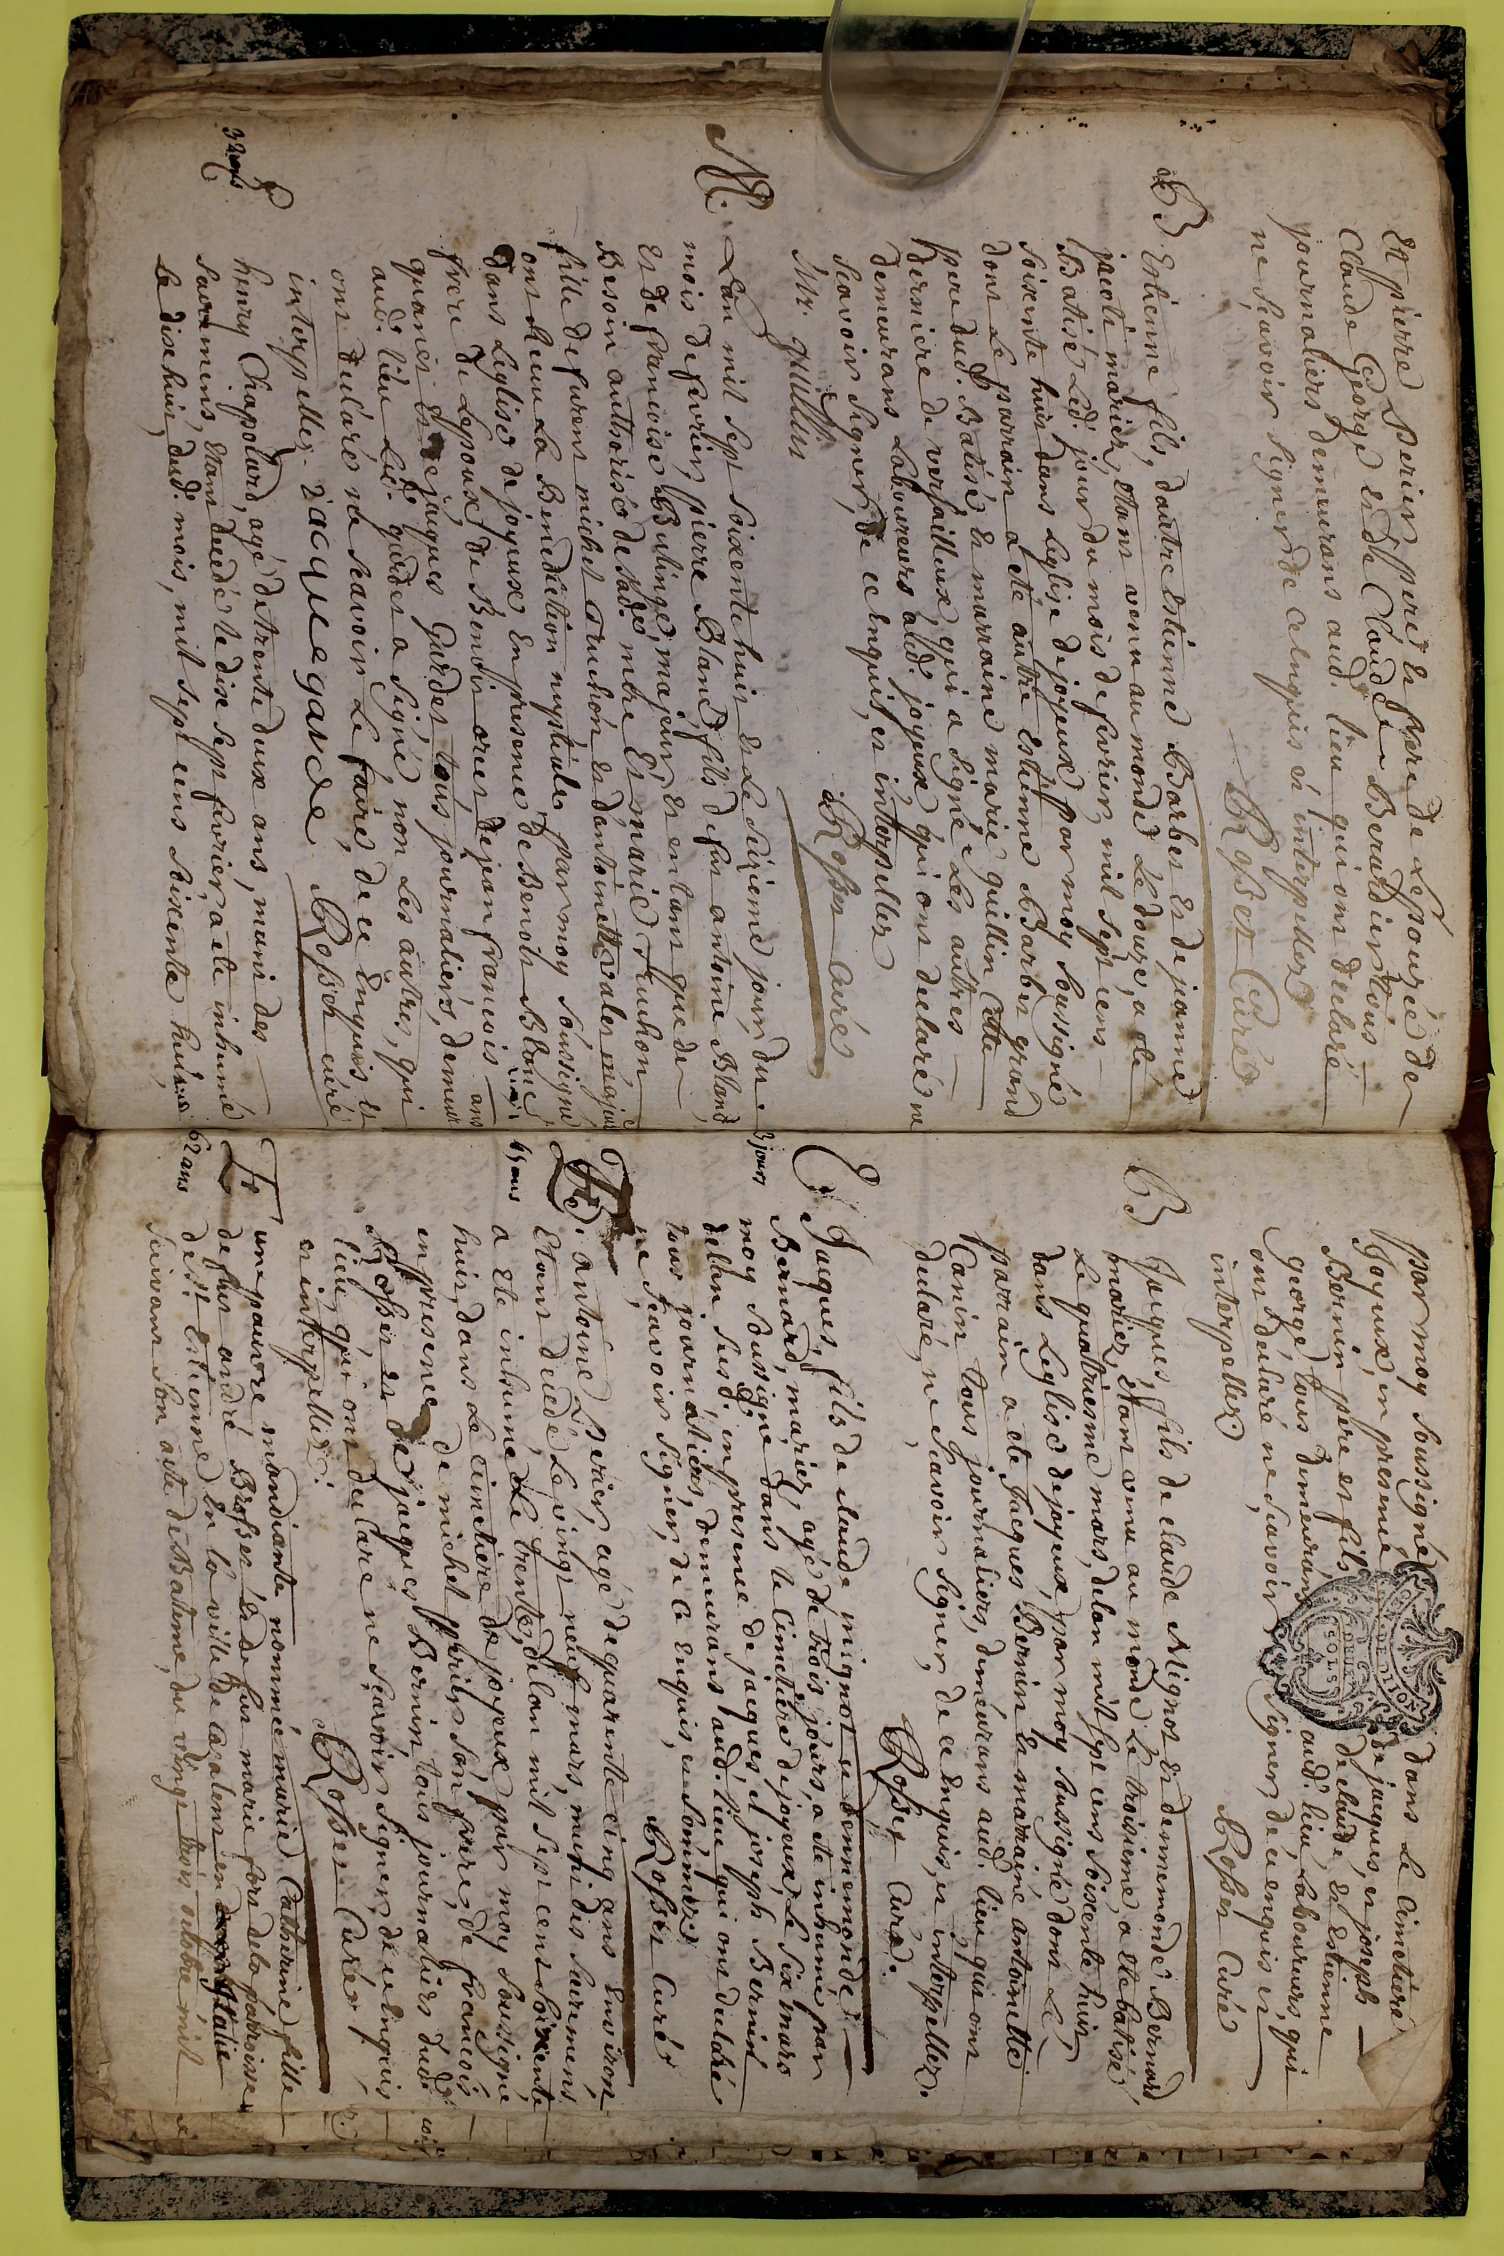 Et pierre Perier pere et frere de Lepouzé de
claude George et de Claude Beraudier tous
journaliers demeurans aud. lieu qui ont declaré
ne scavoir signer de ce enquis et interpellez
Rosset Curé
B
Estienne fils, dautre Estienne Barbet et de jeanne
jacoti mariez, etant venu au monde Le douze, a eté
Batisé Led. jour du mois de fevrier mil sept cens
soixente huit dans Leglise de joyeux par moy soussigné
dont Le parrain a eté autre Estienne Barbet grand
pere dud. Batisé et marraine marie guillin cette
derniere de versailleux, qui a signé Les autres
demeurans Laboureurs aud. joyeux qui ont declaré ne
scavoir signer, de ce enquis, et interpellez
Mr. guillin
Rosset Curé
M.
Lan mil sept soixente huit et Le seizieme jour du
mois de fevrier pierre Blanc, fils defunt antoine Blanc
Et de francoise Bulinge, majeur, et en tant que de
Besoin authorisé de sad. mere Et marie Truchon
fille defunt michel Truchon et dantoinette valet majeure
ont Reçu La Benediction nuptiale par moy soussigné
dans Leglise de joyeux En presence de Benoit Blanc
frere de Lepoux de Benoit orset de jean francois
quanet et de jaques Gardet tous journaliers, demeurt
aud. lieu Led. gardet a signé non Les autres, qui
ont declaré ne scavoir Le faire, de ce Enquis et
interpellez
jacque garde
Rosset curé
32 ans
henry Chapolard, agé de trente deux ans, muni des
sacremens, etant decedé le dix sept fevrier, a ete inhumé
le dix huit dud. mois, mil sept cens soixente huit
par moy soussigné dans Le Cimetiere
de Joyeux, en presence de jacques, et joseph
Bernin pere et fils de claude, et Estienne
George, tous demeurans aud. lieu, Laboureurs, qui
ont declaré ne scavoir signer, de ce enquis et
interpellez
Rosset Curé
GEN. DE DIJON
DEUX
SOLS
B
Jacques, fils de claude Mignot et dennemonde Bernard
mariez, etant venu au monde Le troisieme, a ete batisé
Le quattriesme mars, de lan mil sept cens soixente huit
dans Leglise de joyeux, par moy soussigné dont Le
parrain a ete Jacques Bernin et marraine antoinette
Canin tous journaliers, demeurans aud. lieu qui ont
declaré, ne scavoir signer, de ce enquis, et interpellez.
Rosset Curé.
3 jours
Jacques, fils de claude mignot et dennemonde
Bernard, mariez, agé de trois jours, a ete inhumé par
moy soussigné dans le cimetiere de joyeux, Le six mars
de Lan susd. in presence de jacques, et joseph Bernin
tous journaliers, demeurans aud. lieu qui ont declaré
ne scavoir signer, de ce enquis, et sommez
Rosset Curé
45 ans
antoine Perier, agé de quarente cinq ans Environ
Etant decedé Le vingt neuf mars, muni des sacremens,
a ete inhumé Le trente, de lan mil sept cens soixente
huit, dans Le cimetiere de joyeux par moy soussigné,
en presence de michel perier son frere, de francois
Rosset et de jacques Bernin tous journaliers dud.
lieu, qui ont declare ne scavoir signer, de ce enquis
et interpellez.
Rosset Curé
62 ans
une pauvre mandiante nommée marie Catherine fille
defunt andré Brosset et defunt marie fort de la paroisse
de st Estienne En la ville de en italie
suivant son acte de Bateme, du vingt trois octobre mil